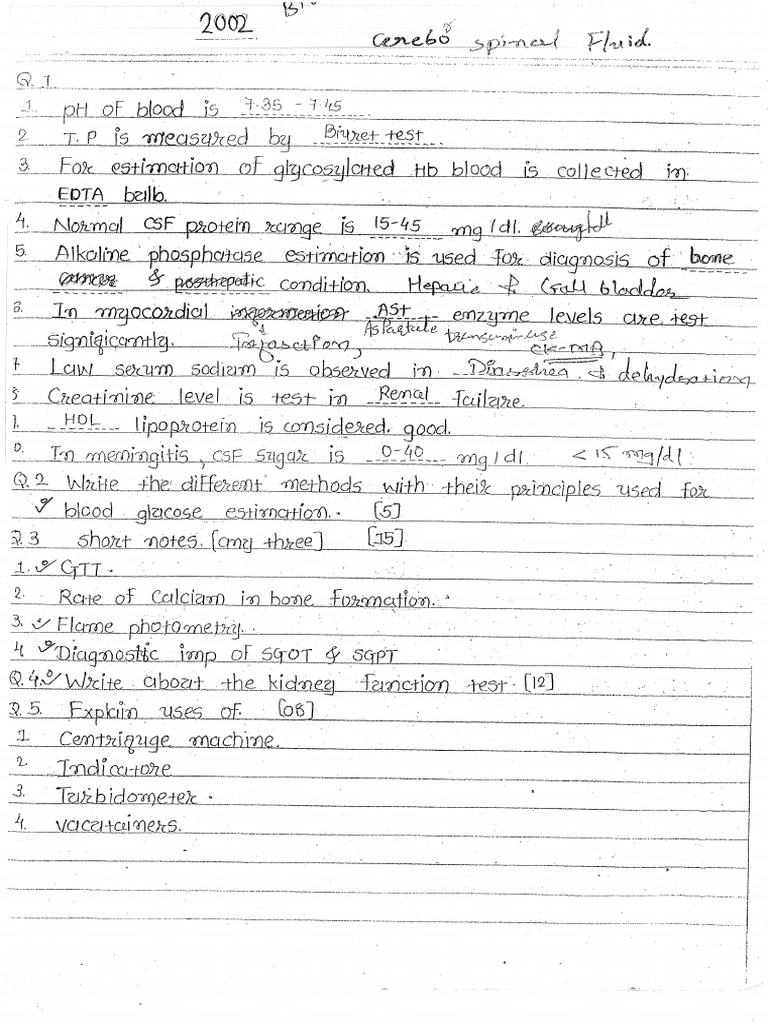 2002
Cerebo spinal Fluid.
Q.1
1. pH of blood is 7.35 - 7.45
2 T.P is measured by Biuret test
3. For estimation of glycosylated Hb blood is collected in
EDTA bulb.
4. Normal CSF protein range is 15-45 mg/dl.
5. Alkaline phosphatase estimation is used for diagnosis of bone
& posthepatic condition. Hepatic & Gall bladdar
In myocordial AST enzyme levels are test
Aspartate transaminase
significantly. Infarction,
7 Law serum sodium is observed in Diarrohea & dehydration
Creatinine level is test in Renal failure.
HDL lipoprotein is considered good.
0. In meningitis, CSF sugar is 0-40 mg/dl <15 mg/dl
Q.2 Write the different methods with their principles used for
blood glucose estimation. [5]
Q.3 short notes. [any three] [15]
1. GTT.
2. Rate of calcium in bone formation.
3. Flame photometry.
4 Diagnostic imp of SGOT & SGPT
Q.4. Write about the kidney function test. [12]
Q.5. Explain uses of. [08]
1 Centrifuge machine.
2 Indicatore
3. Turbidometer.
4. vacutainers.